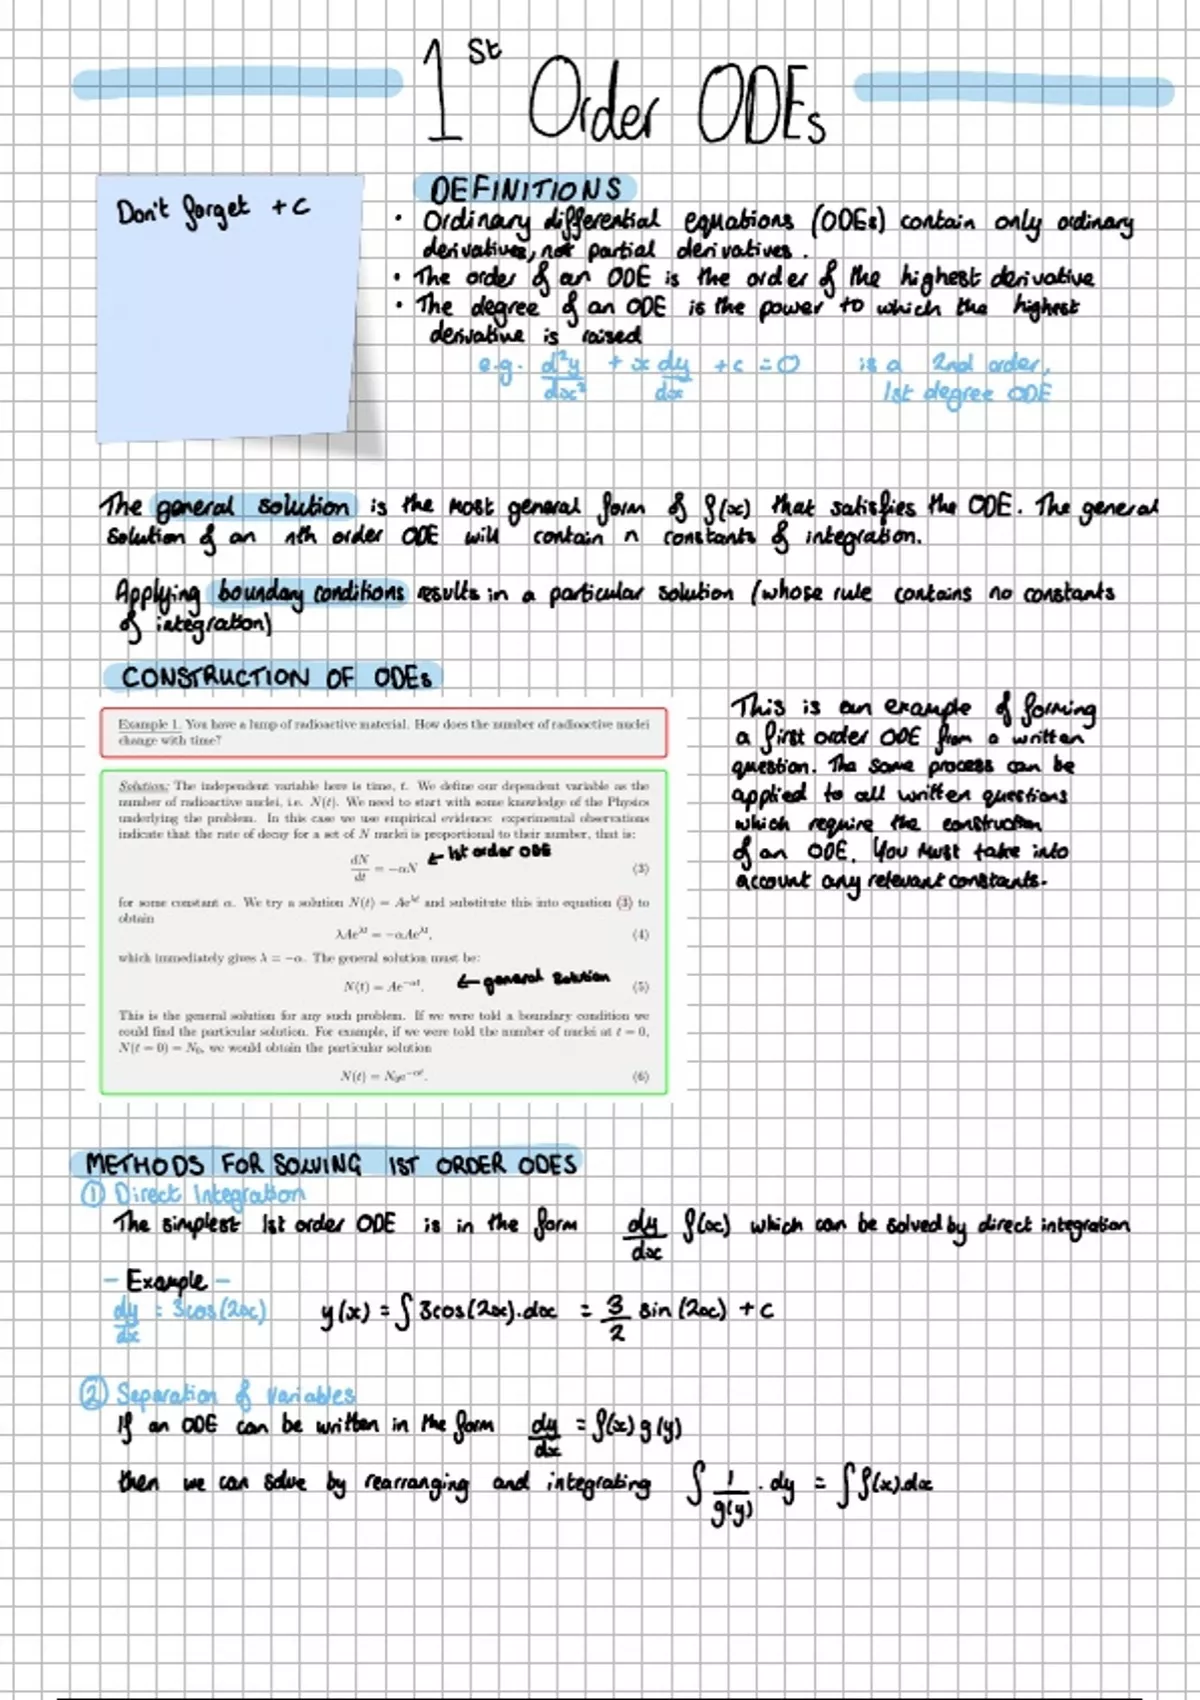 1st Order ODEs
Don't forget +c
DEFINITIONS
• Ordinary differential equations (ODEs) contain only ordinary
derivatives, not partial derivatives.
• The order of an ODE is the order of the highest derivative
• The degree of an ODE is the power to which the highest
derivative is raised
e.g. d²y/dx² + x dy/dx + c = 0 is a 2nd order,
1st degree ODE
The general solution is the most general form of f(x) that satisfies the ODE. The general
solution of an nth order ODE will contain n constants of integration.
Applying boundary conditions results in a particular solution (whose rule contains no constants
of integration)
CONSTRUCTION OF ODEs
Example 1. You have a lump of radioactive material. How does the number of radioactive nuclei
change with time?
Solution: The independent variable here is time, t. We define our dependent variable as the
number of radioactive nuclei, i.e. N(t). We need to start with some knowledge of the Physics
underlying the problem. In this case we use empirical evidence: experimental observations
indicate that the rate of decay for a set of N nuclei is proportional to their number, that is:
dN/dt = −αN ← 1st order ODE (3)
for some constant α. We try a solution N(t) = Ae^λt and substitute this into equation (3) to
obtain
λAe^λt = −αAe^λt, (4)
which immediately gives λ = −α. The general solution must be:
N(t) = Ae^−αt. ← general solution (5)
This is the general solution for any such problem. If we were told a boundary condition we
could find the particular solution. For example, if we were told the number of nuclei at t = 0,
N(t = 0) = N₀, we would obtain the particular solution
N(t) = N₀e^−αt. (6)
This is an example of forming
a first order ODE from a written
question. The same process can be
applied to all written questions
which require the construction
of an ODE. You must take into
account any relevant constants.
METHODS FOR SOLVING 1ST ORDER ODES
① Direct Integration
The simplest 1st order ODE is in the form dy/dx f(x) which can be solved by direct integration
- Example -
dy/dx = 3cos(2x) y(x) = ∫ 3cos(2x).dx = 3/2 sin(2x) + c
② Separation of Variables
If an ODE can be written in the form dy/dx = f(x) g(y)
then we can solve by rearranging and integrating ∫ 1/g(y) . dy = ∫ f(x).dx